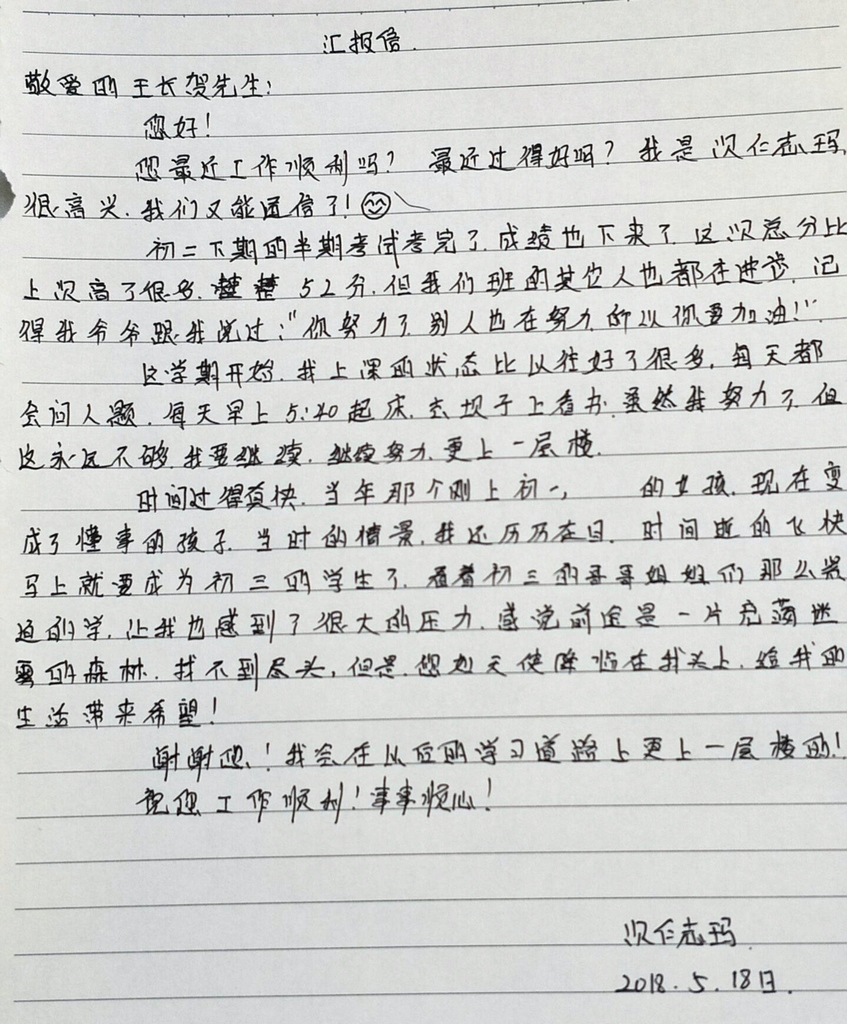 汇报信.
敬爱的王长贺先生:
您好!
您最近工作顺利吗? 最近过得好吗? 我是次仁志玛,
很高兴.我们又能通信了!
初二下期的半期考试考完了.成绩也下来了.这次总分比
上次高了很多.整整52分.但我们班的其它人也都在进步.记
得我爷爷跟我说过:"你努力了.别人也在努力.所以你要加油!".
这学期开始.我上课的状态比以往好了很多.每天都
会问人题.每天早上5:40起床.去坝子上看书.虽然我努力了.但
这永远不够.我要继续.继续努力.更上一层楼.
时间过得真快.当年那个刚上初一, 的女孩.现在变
成了懂事的孩子.当时的情景.我还历历在目.时间过的飞快
马上就要成为初三的学生了.看着初三的哥哥姐姐们那么紧
迫的学.让我也感到了很大的压力.感觉前途是一片充满迷
雾的森林.找不到尽头,但是.您如天使降临在我头上.给我的
生活带来希望!
谢谢您!我会在以后的学习道路上更上一层楼的!
祝您工作顺利!事事顺心!
次仁志玛.
2018.5.18日.